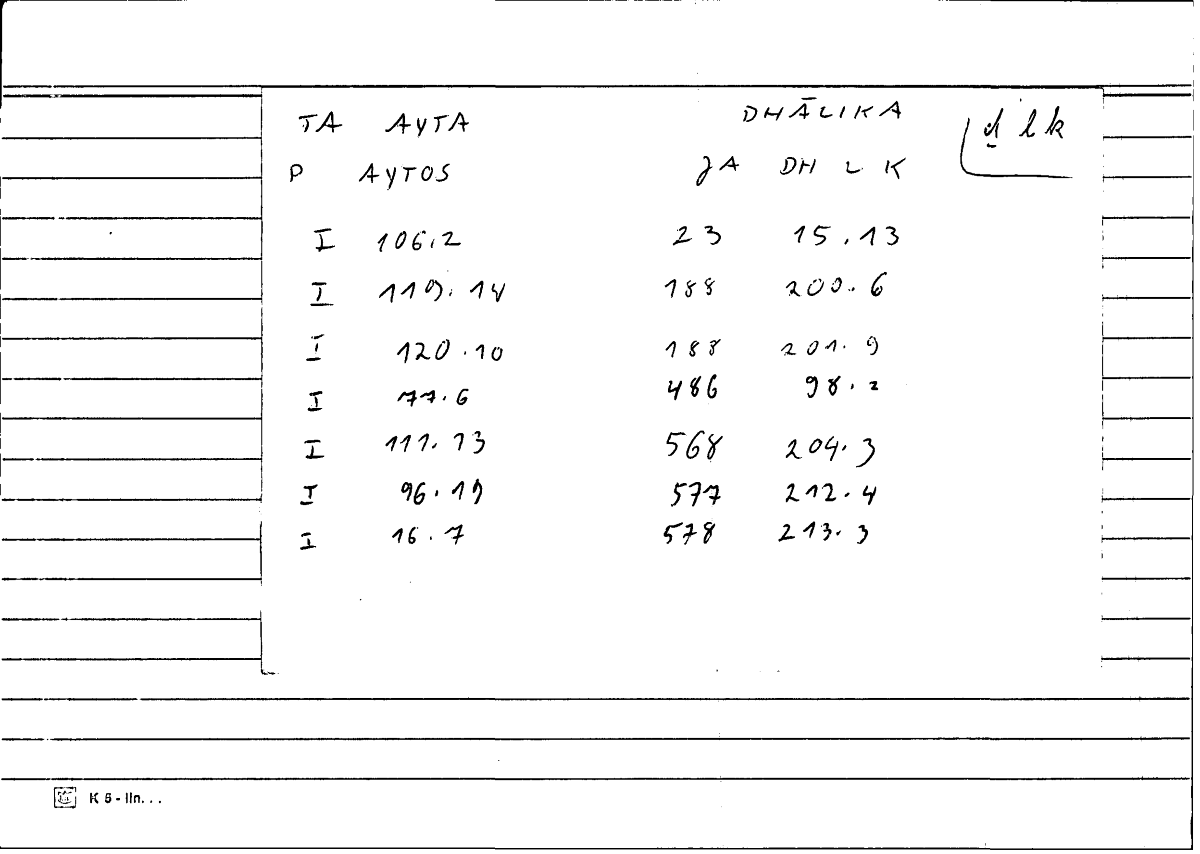 TA AYTA DHĀLIKA ḏ l k
P AYTOS JA DH L K
I 106.2 23 15.13
I 119.14 188 200.6
I 120.10 188 201.9
I 77.6 486 98.2
I 111.13 568 204.3
I 96.19 577 212.4
I 16.7 578 213.3
K 5 - lln...